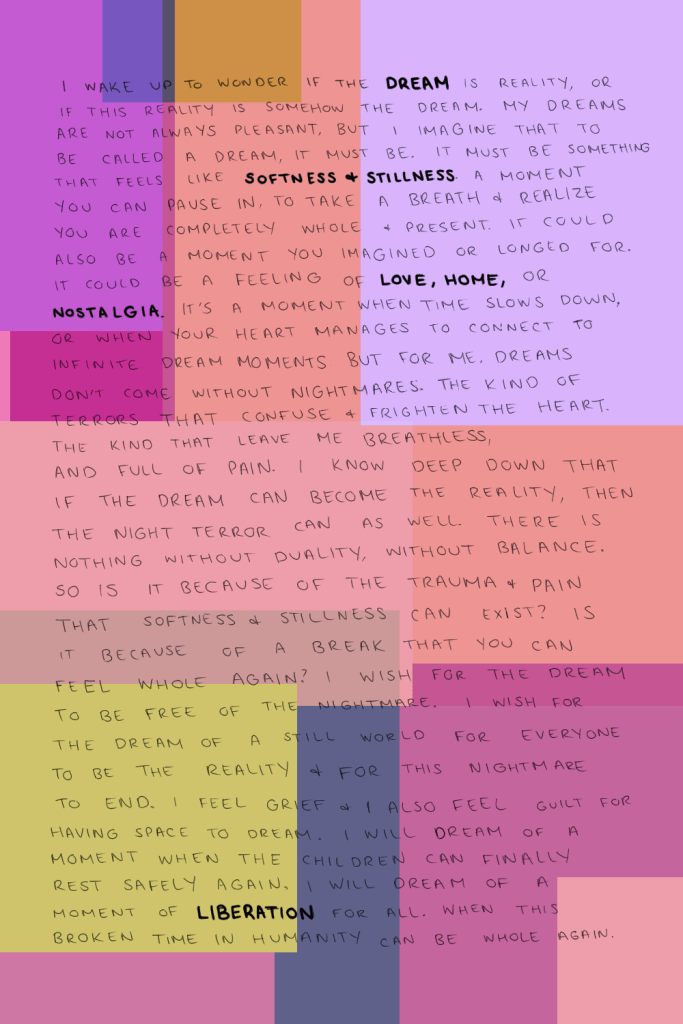 I WAKE UP TO WONDER IF THE DREAM IS REALITY, OR
IF THIS REALITY IS SOMEHOW THE DREAM. MY DREAMS
ARE NOT ALWAYS PLEASANT, BUT I IMAGINE THAT TO
BE CALLED A DREAM, IT MUST BE. IT MUST BE SOMETHING
THAT FEELS LIKE SOFTNESS & STILLNESS. A MOMENT
YOU CAN PAUSE IN, TO TAKE A BREATH & REALIZE
YOU ARE COMPLETELY WHOLE & PRESENT. IT COULD
ALSO BE A MOMENT YOU IMAGINED OR LONGED FOR.
IT COULD BE A FEELING OF LOVE, HOME, OR
NOSTALGIA. IT'S A MOMENT WHEN TIME SLOWS DOWN,
OR WHEN YOUR HEART MANAGES TO CONNECT TO
INFINITE DREAM MOMENTS BUT FOR ME. DREAMS
DON'T COME WITHOUT NIGHTMARES. THE KIND OF
TERRORS THAT CONFUSE & FRIGHTEN THE HEART.
THE KIND THAT LEAVE ME BREATHLESS,
AND FULL OF PAIN. I KNOW DEEP DOWN THAT
IF THE DREAM CAN BECOME THE REALITY, THEN
THE NIGHT TERROR CAN AS WELL. THERE IS
NOTHING WITHOUT DUALITY, WITHOUT BALANCE.
SO IS IT BECAUSE OF THE TRAUMA & PAIN
THAT SOFTNESS & STILLNESS CAN EXIST? IS
IT BECAUSE OF A BREAK THAT YOU CAN
FEEL WHOLE AGAIN? I WISH FOR THE DREAM
TO BE FREE OF THE NIGHTMARE. I WISH FOR
THE DREAM OF A STILL WORLD FOR EVERYONE
TO BE THE REALITY & FOR THIS NIGHTMARE
TO END. I FEEL GRIEF & I ALSO FEEL GUILT FOR
HAVING SPACE TO DREAM. I WILL DREAM OF A
MOMENT WHEN THE CHILDREN CAN FINALLY
REST SAFELY AGAIN. I WILL DREAM OF A
MOMENT OF LIBERATION FOR ALL. WHEN THIS
BROKEN TIME IN HUMANITY CAN BE WHOLE AGAIN.